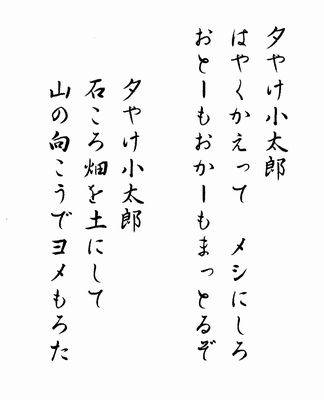 夕やけ小太郎
はやくかえって　メシにしろ
おとーもおかーもまっとるぞ
夕やけ小太郎
石ころ畑を土にして
山の向こうでヨメもろた